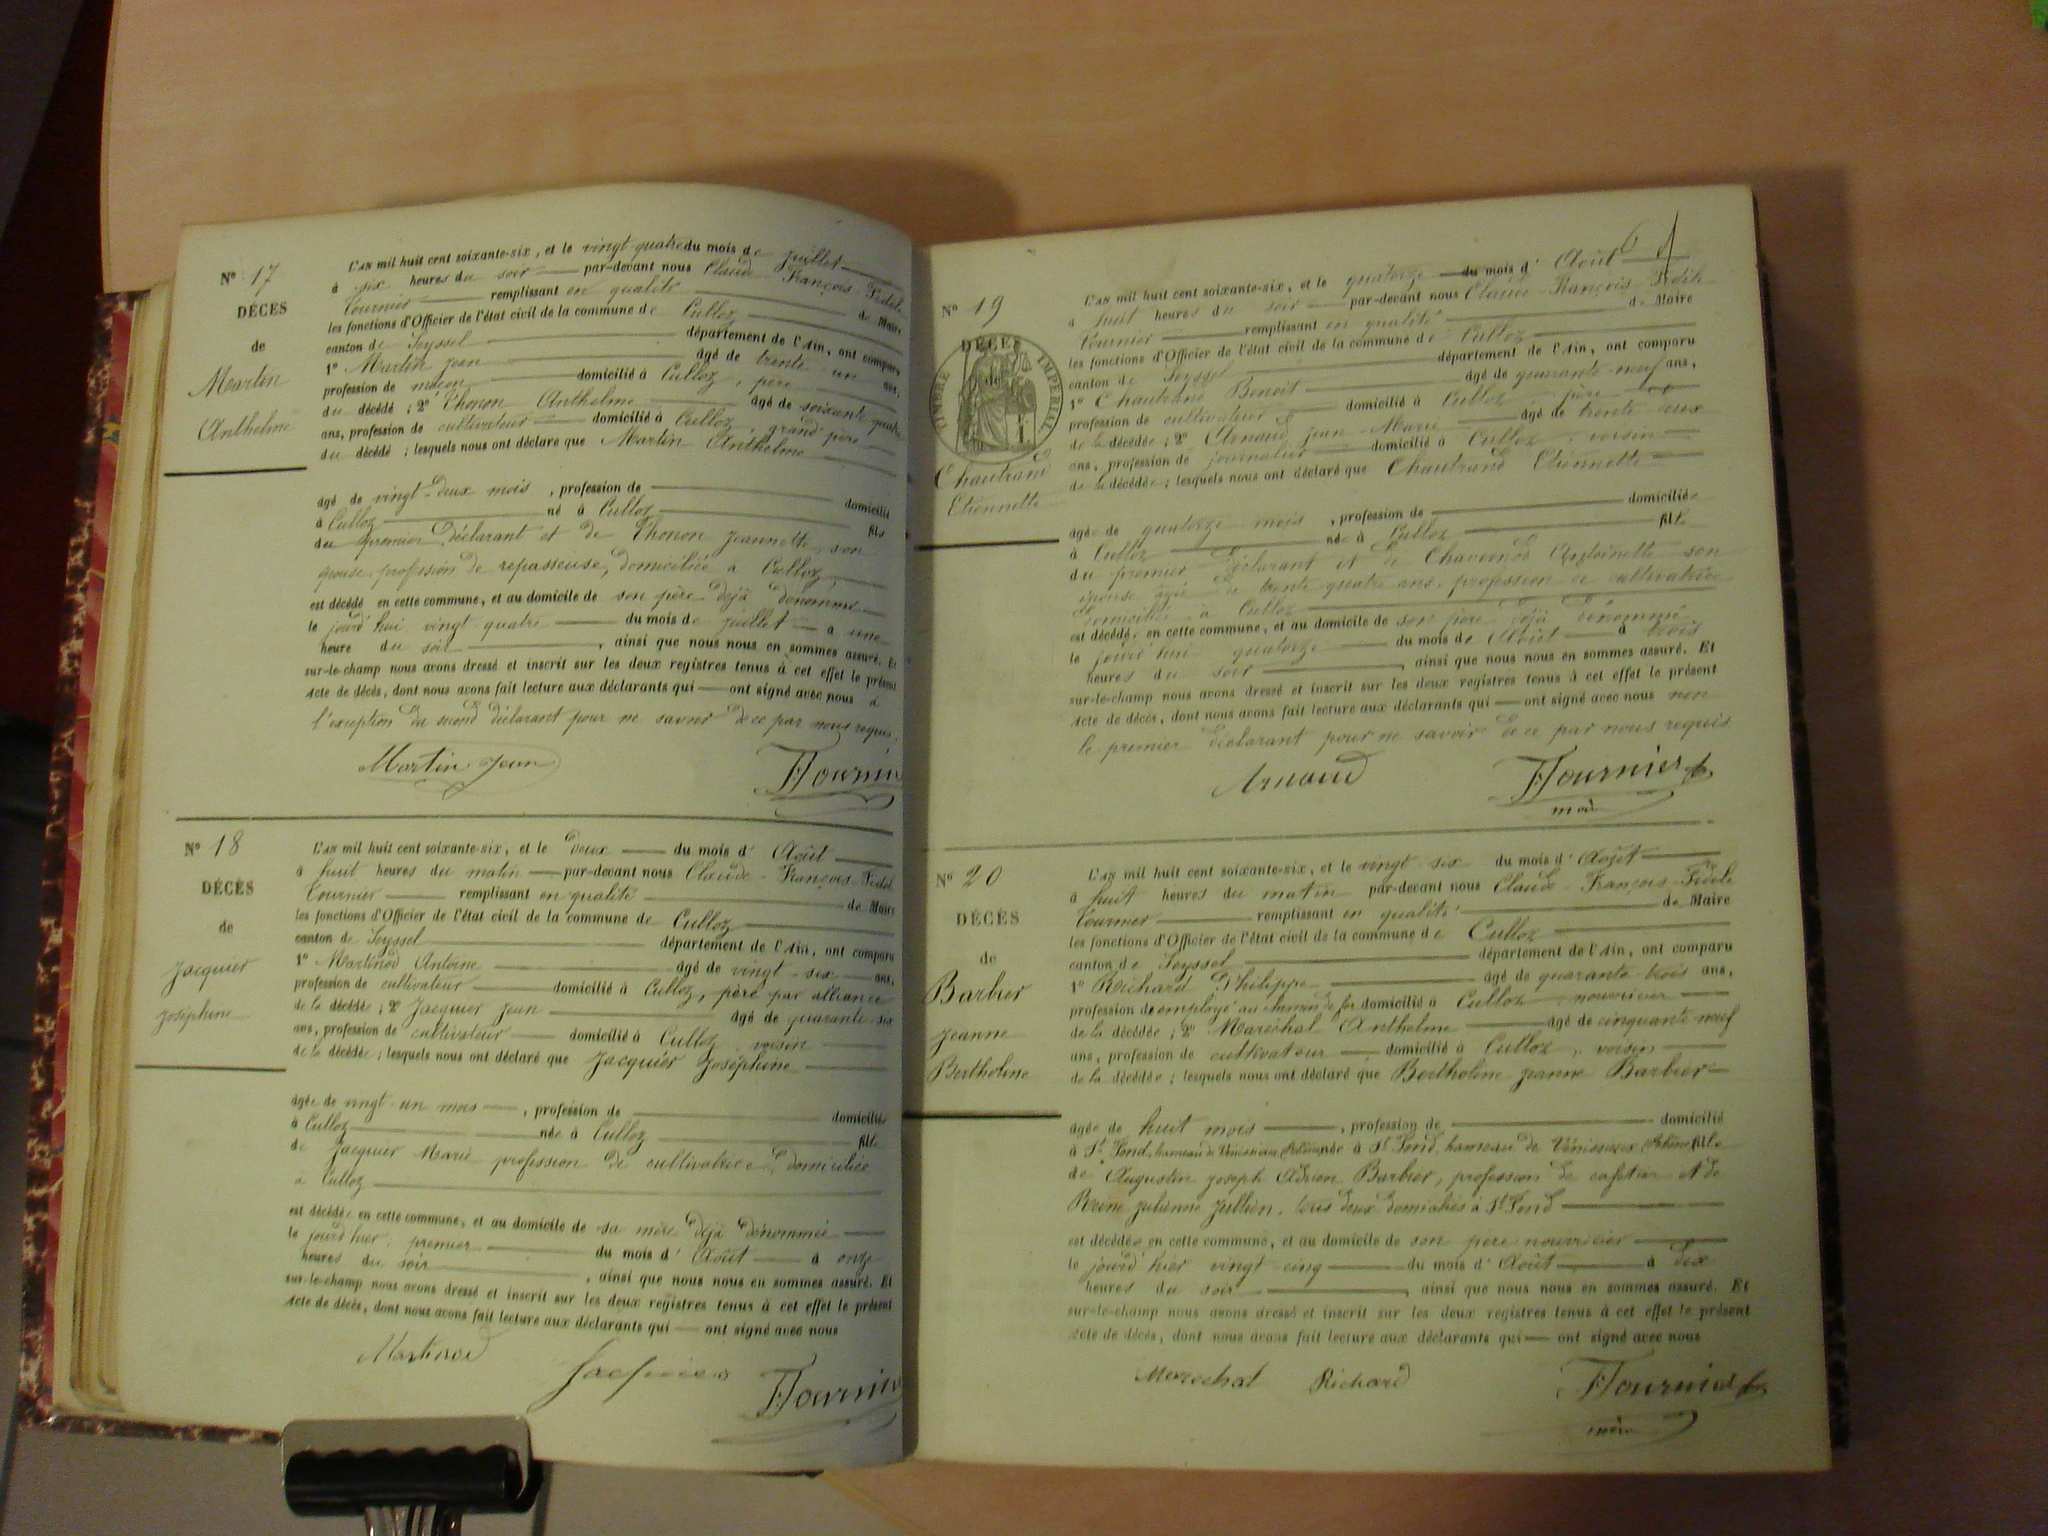 N° 17
DÉCÈS
de
Martin
Anthelme
L'AN mil huit cent soixante-six, et le vingt-quatre du mois de juillet
à six heures du soir par-devant nous Claude-François-Fidèle
Tournier remplissant en qualité de Maire
les fonctions d'Officier de l'état civil de la commune de Culloz
canton de Seyssel département de l'Ain, ont comparu
1° Martin jean âgé de trente un ans,
profession de maçon domicilié à Culloz, père
du décédé ; 2° Thonon Anthelme âgé de soixante quatre
ans, profession de cultivateur domicilié à Culloz, grand père
du décédé ; lesquels nous ont déclaré que Martin Anthelme
âgé de vingt-deux mois, profession de domicilié
à Culloz né à Culloz fils
du premier déclarant et de Thonon jeannette son
épouse profession de repasseuse, domiciliée à Culloz
est décédé en cette commune, et au domicile de son père déjà dénommé
le jourd'hui vingt quatre du mois de juillet à une
heure du soir, ainsi que nous nous en sommes assuré. Et
sur-le-champ nous avons dressé et inscrit sur les deux registres tenus à cet effet le présent
acte de décès, dont nous avons fait lecture aux déclarants qui ont signé avec nous à
l'exception du second déclarant pour ne savoir de ce par nous requis.
Martin jean
FTournier
N° 18
DÉCÈS
de
Jacquier
joséphine
L'AN mil huit cent soixante-six, et le deux du mois d'Août
à huit heures du matin par-devant nous Claude-François-Fidèle
Tournier remplissant en qualité de Maire
les fonctions d'Officier de l'état civil de la commune de Culloz
canton de Seyssel département de l'Ain, ont comparu
1° Martinod Antoine âgé de vingt-six ans,
profession de cultivateur domicilié à Culloz, père par alliance
de la décédée ; 2° Jacquier jean âgé de quarante-six
ans, profession de cultivateur domicilié à Culloz voisin
de la décédée ; lesquels nous ont déclaré que Jacquier Joséphine
âgée de vingt-un mois, profession de domiciliée
à Culloz née à Culloz fille
de Jacquier Marie profession de cultivatrice domiciliée
à Culloz
est décédée en cette commune, et au domicile de sa mère déjà dénommée
le jourd'hier premier du mois d'Août à onze
heures du soir, ainsi que nous nous en sommes assuré. Et
sur-le-champ nous avons dressé et inscrit sur les deux registres tenus à cet effet le présent
acte de décès, dont nous avons fait lecture aux déclarants qui ont signé avec nous
Martinod
Jacquier
FTournier
6
N° 19
DÉCÈS
de
TIMBRE IMPÉRIAL
Chautrand
Etiennette
L'AN mil huit cent soixante-six, et le quatorze du mois d'Août
à huit heures du soir par-devant nous Claude-François-Fidèle
Tournier remplissant en qualité de Maire
les fonctions d'Officier de l'état civil de la commune de Culloz
canton de Seyssel département de l'Ain, ont comparu
1° Chautrand Benoit âgé de quarante-neuf ans,
profession de cultivateur domicilié à Culloz père
de la décédée ; 2° Arnaud jean-Marie âgé de trente deux
ans, profession de journalier domicilié à Culloz, voisin
de la décédée ; lesquels nous ont déclaré que Chautrand Etiennette
âgée de quatorze mois, profession de domiciliée
à Culloz née à Culloz fille
du premier déclarant et de Antoinette son
épouse âgée de trente quatre ans, profession de cultivatrice
domiciliés à Culloz
est décédée en cette commune, et au domicile de son père déjà dénommé
le jourd'hui quatorze du mois de Août à trois
heures du soir, ainsi que nous nous en sommes assuré. Et
sur-le-champ nous avons dressé et inscrit sur les deux registres tenus à cet effet le présent
acte de décès, dont nous avons fait lecture aux déclarants qui ont signé avec nous non
le premier déclarant pour ne savoir de ce par nous requis
Arnaud
FTournier
N° 20
DÉCÈS
de
Barbier
jeanne
Bertholine
L'AN mil huit cent soixante-six, et le vingt six du mois d'Août
à huit heures du matin par-devant nous Claude-François-Fidèle
Tournier remplissant en qualité de Maire
les fonctions d'Officier de l'état civil de la commune de Culloz
canton de Seyssel département de l'Ain, ont comparu
1° Richard Philippe âgé de quarante trois ans,
profession de employé au chemin de fer domicilié à Culloz nourricier
de la décédée ; 2° Marechal Anthelme âgé de cinquante neuf
ans, profession de cultivateur domicilié à Culloz, voisin
de la décédée ; lesquels nous ont déclaré que Bertholine jeanne Barbier
âgée de huit mois, profession de domicilié
à St Fond, hameau de Vénissieux (Rhône) née à St Fond, hameau de Vénissieux (Rhône) fille
de Augustin joseph Adrien Barbier, profession de cafetier et de
Reine julienne jullien, tous deux domiciliés à St Fond
est décédée en cette commune, et au domicile de son père nourricier
le jourd'hier vingt cinq du mois d'Août à dix
heures du soir, ainsi que nous nous en sommes assuré. Et
sur-le-champ nous avons dressé et inscrit sur les deux registres tenus à cet effet le présent
acte de décès, dont nous avons fait lecture aux déclarants qui ont signé avec nous
Marechal
Richard
FTournier